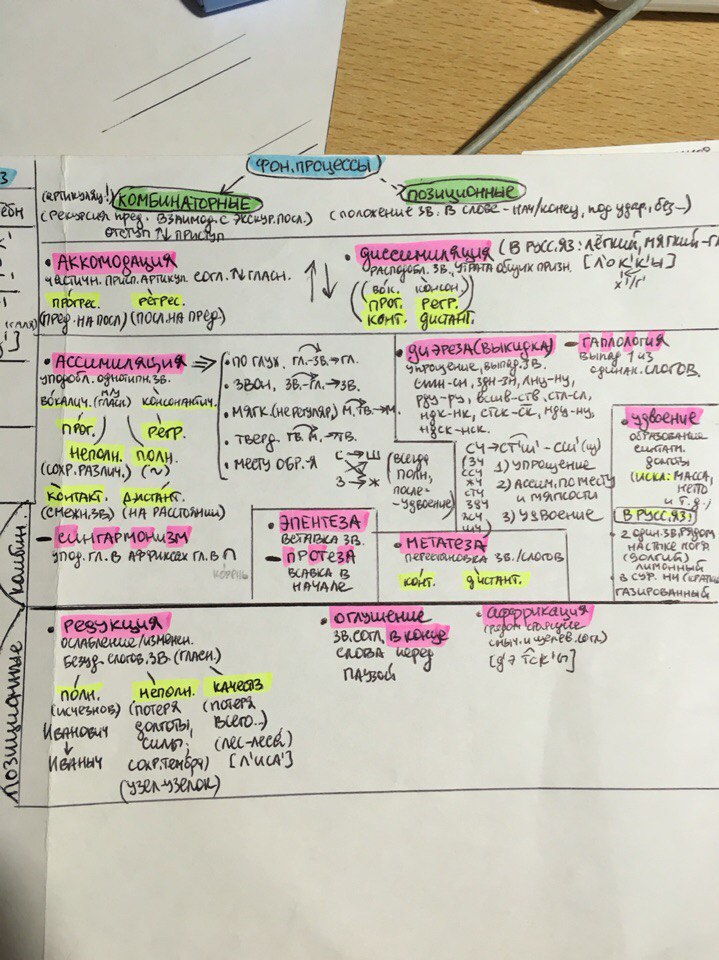 ФОН. ПРОЦЕССЫ
(артикуляц!) КОМБИНАТОРНЫЕ
(рекурсия пред. взаимод. с экскур. посл.)
отступ ↑↓ приступ
ПОЗИЦИОННЫЕ
(положение зв. в слове - нач/конец, под удар, без-)
• АККОМОДАЦИЯ
частичн. присп. артикул. согл. ↑↓ гласн.
прогрес. регрес.
(пред. на посл) (посл. на пред.)
• ДИССИМИЛЯЦИЯ (в русс. яз: лёгкий, мягкий - г
расподобл. зв, утрата общих призн. [л'о к'к'ы]
х'/г'
(вок. консон)
прог. регр.
конт. дистант.
• АССИМИЛЯЦИЯ
уподобл. однотипн. зв.
вокалич. (гласн) консонантич.
прог. регр.
неполн. полн.
(сохр. различ.) (~)
контакт. дистант.
(смежн. зв) (на расстоянии)
– СИНГАРМОНИЗМ
упод. гл. в аффиксах гл. в
корень
• по глух. гл.-зв.→гл.
• звон. зв.-гл.→зв.
• мягк. (нерегуляр) м. тв.→м.
• тверд. тв. м.→тв.
• месту обр-я с→ш
з→ж
(всегда
полн,
после-
удвоение)
• ДИЭРЕЗА (ВЫКИДКА)
упрощение, выпад. зв.
стн-сн, здн-зн, лнц-нц,
рдц-рц, вств-ств, стл-сл,
ндк-нк, стск-ск, ндц-нц,
ндск-нск.
– ГАПЛОЛОГИЯ
выпад 1 из
одинак. слогов
сч→стч'-сш' (щ)
зч
ссч
жч
стч
здч
жч
шч
1) упрощение
2) ассим. по месту
и мягкости
3) удвоение
• УДВОЕНИЕ
образование
долготы
(искл: масса,
нетто
и т.д.)
в русс. яз:
• 2 один. зв. рядом
на стыке морф
(долгий)
лимонный
• в суф. нн (кратк
газированный
• ЭПЕНТЕЗА
вставка зв.
– ПРОТЕЗА
вставка в
начале
• МЕТАТЕЗА
перестановка зв./слогов
конт. дистант.
комбин.
позиционные
• РЕДУКЦИЯ
ослабление/изменен.
безуд. слогов. зв. (гласн.)
полн. неполн. качеств
(исчезнов) (потеря (потеря
Иванович долготы, всего..)
↓ силы; (лес-леса)
Иваныч сохр. тембр) [л'иса']
(узел-узелок)
• ОГЛУШЕНИЕ
зв. согл, в конце
слова перед
паузой
• АФФРИКАЦИЯ
(рядом стоящие
смыч. и щелев. согл)